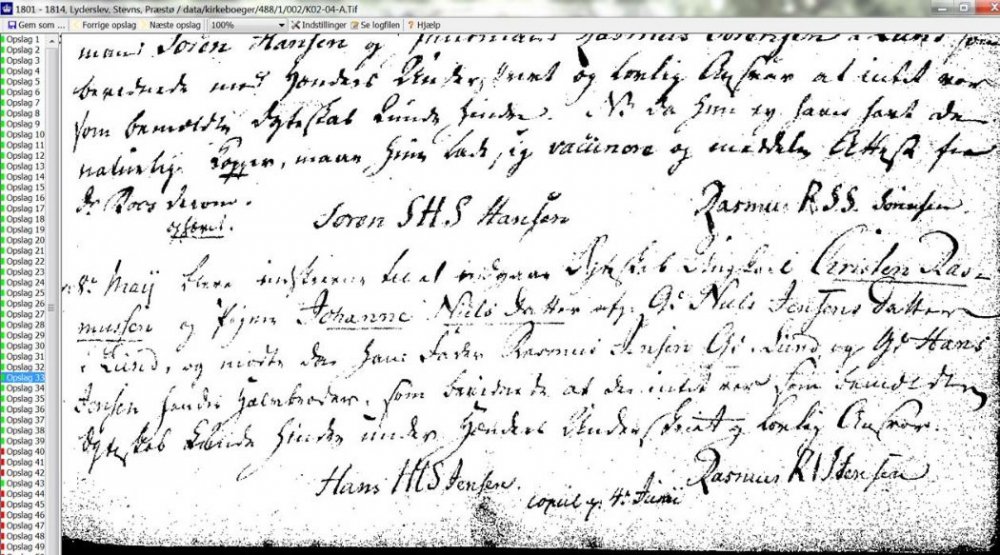 1801 - 1814, Lyderslev, Stevns, Præstø / data/kirkeboeger/488/1/002/K02-04-A.Tif
Gem som ... Forrige opslag Næste opslag 100% Indstillinger Se logfilen ? Hjælp
Opslag 1
Opslag 2
Opslag 3
Opslag 4
Opslag 5
Opslag 6
Opslag 7
Opslag 8
Opslag 9
Opslag 10
Opslag 11
Opslag 12
Opslag 13
Opslag 14
Opslag 15
Opslag 16
Opslag 17
Opslag 18
Opslag 19
Opslag 20
Opslag 21
Opslag 22
Opslag 23
Opslag 24
Opslag 25
Opslag 26
Opslag 27
Opslag 28
Opslag 29
Opslag 30
Opslag 31
Opslag 32
Opslag 33
Opslag 34
Opslag 35
Opslag 36
Opslag 37
Opslag 38
Opslag 39
Opslag 40
Opslag 41
Opslag 42
Opslag 43
Opslag 44
Opslag 45
Opslag 46
Opslag 47
Opslag 48
Opslag 49
Søren Hansen og Rasmus Sørensen i Lund
med Hænders Underskrivt og lovlig Ansvar at intet var
som bemeldte Ægteskab kunde hindre. NB da hun ey have havt de
naturlig Kopper, maae hun lade sig vaccinere og meddele Attest fra
Dr Roos derom.
Søren SHS Hansen Rasmus RSS Sørensen
8de Maij bleve indskrevne til at indgaae Ægteskab Ungkarl Christen Ras-
mussen og Pigen Johanne Niels Datter Niels Jensens Datter
i Lund, og mødte da hans Fader Rasmus Jensen i Lund og Hans
Jensen hendes Halvbroder, som bevidnede at der intet var som bemeldte
Ægteskab kunde hindre under Hænders Underskrivt og lovlig Ansvar.
Hans HIS Jensen. Rasmus RIS Jensen
copul. 4de Junii